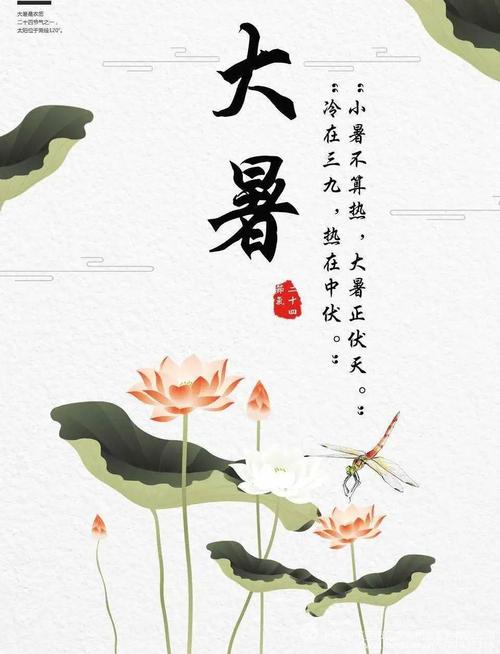 大暑是农历
二十四节气之一，
太阳位于黄经120°。
大暑
“小暑不算热，大暑正伏天。”
“冷在三九，热在中伏。”
二十四
节氣